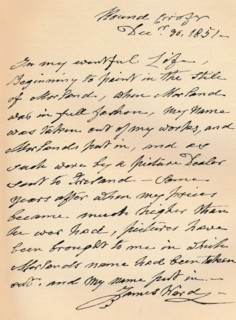 Round Croft
Dec.r 30. 1851–
In my eventful Life,
Beginning to paint in the stile
of Morland, when Morland
was in full fashon, my Name
was taken out of my works, and
Morlands put in, and as
such were by a picture Dealer
sent to Ireland – some
years after when my prices
became much higher than
he was had, pictures have
been brought to me in which
Morlands name had been taken
out. and my name put in –
James Ward